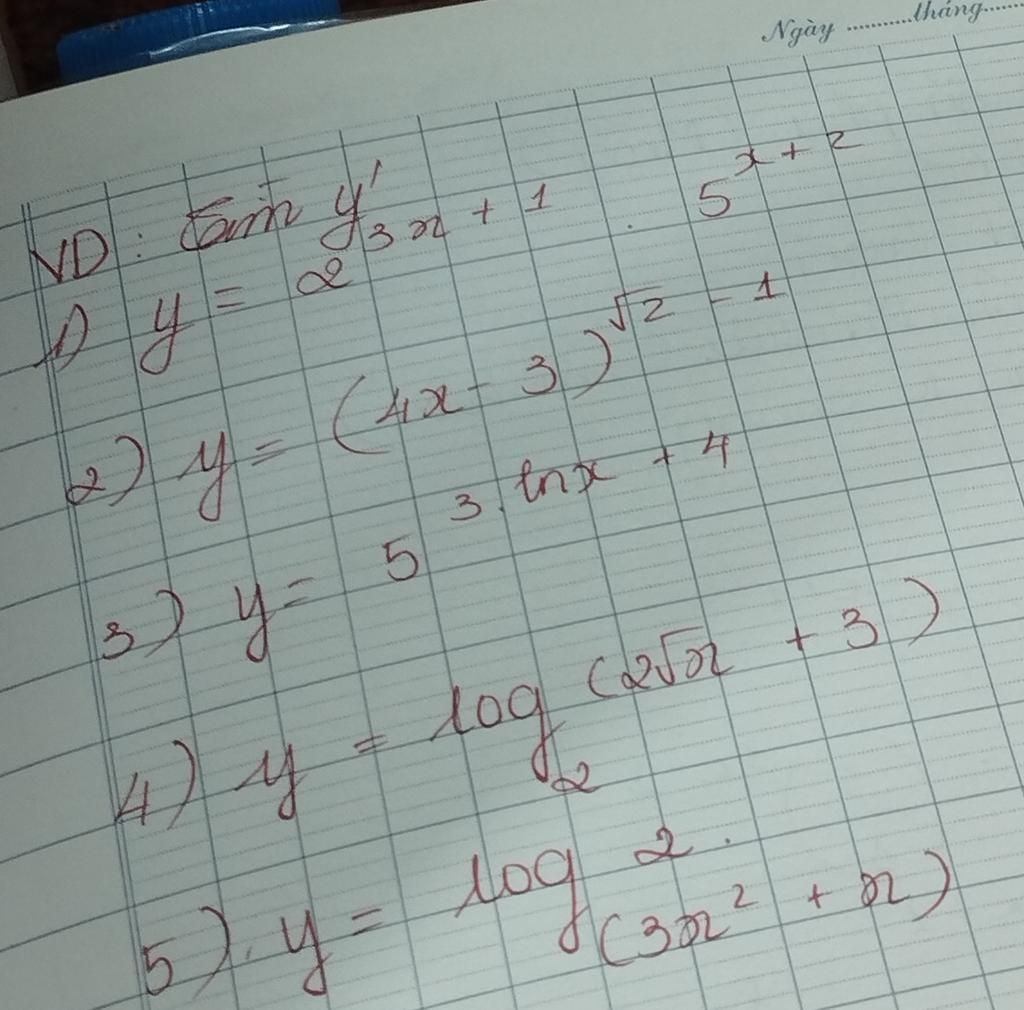 Ngày ...........tháng.......
VD: Tìm y'
1) y = 2^{3x + 1} . 5^{x + 2}
2) y = (4x - 3)^{√2 - 1}
3) y = 5^{3.lnx + 4}
4) y = log_2 (2√x + 3)
5) y = log_{(3x² + x)} 2.